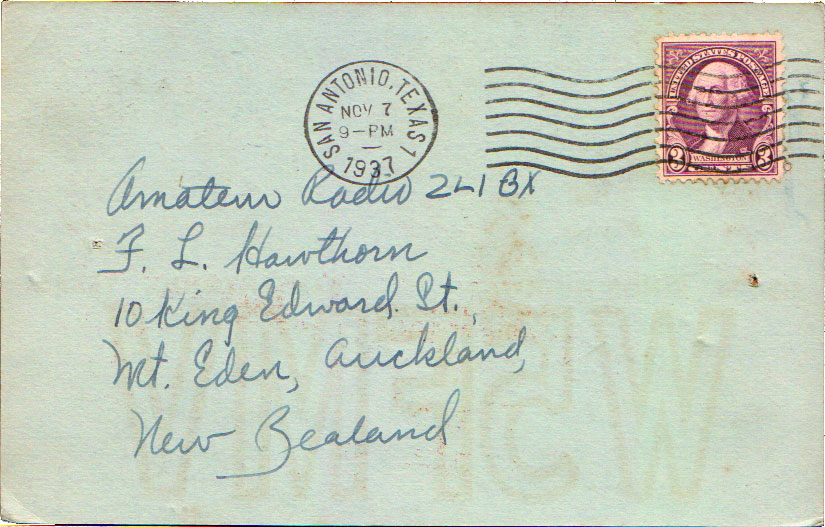 SAN ANTONIO, TEXAS 1
NOV 7
9-PM
1937
UNITED STATES POSTAGE
WASHINGTON
3 3
Amateur Radio ZL1BX
F. L. Hawthorn
10 King Edward St.,
Mt. Eden, Auckland,
New Zealand